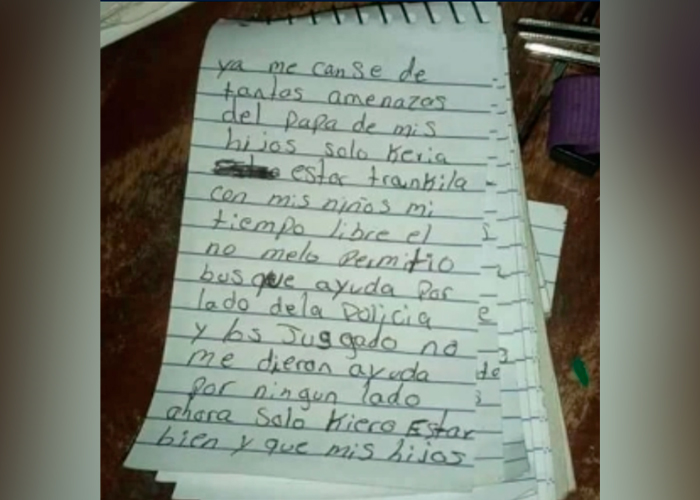 ya me canse de
tantas amenazas
del papa de mis
hijos solo Keria
estar trankila
con mis niños mi
tiempo libre el
no melo permitio
busque ayuda por
lado dela policia
y los Juggado no
me dieron ayuda
por ningun lado
ahora solo Kiero Estar
bien y que mis hijos